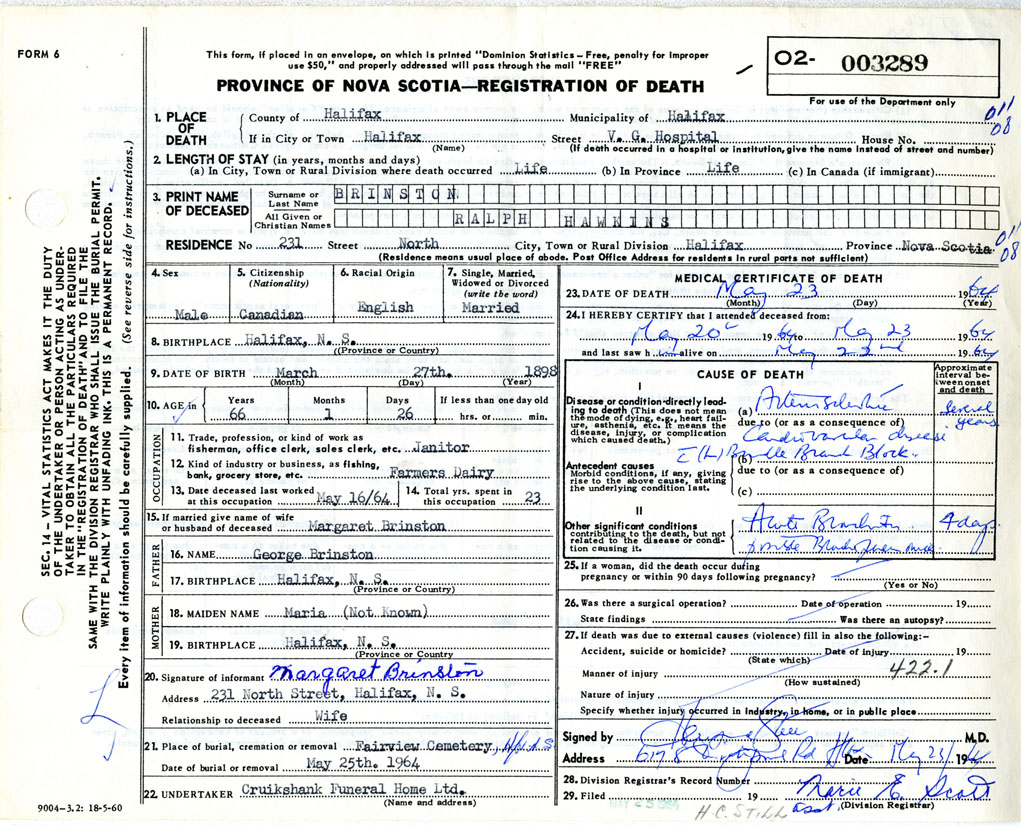 FORM 6
This form, if placed in an envelope, on which is printed "Dominion Statistics—Free, penalty for improper
use $50," and properly addressed will pass through the mail "FREE"
PROVINCE OF NOVA SCOTIA—REGISTRATION OF DEATH
O2- 003289
For use of the Department only
1. PLACE OF DEATH
County of Halifax Municipality of Halifax
011
08
If in City or Town Halifax Street V. G. Hospital House No.
(Name) (If death occurred in a hospital or institution, give the name instead of street and number)
2. LENGTH OF STAY (in years, months and days)
(a) In City, Town or Rural Division where death occurred Life (b) In Province Life (c) In Canada (if immigrant)
3. PRINT NAME OF DECEASED
Surname or Last Name BRINSTON
All Given or Christian Names RALPH HAWKINS
RESIDENCE No 231 Street North City, Town or Rural Division Halifax Province Nova Scotia
011
08
(Residence means usual place of abode. Post Office Address for residents in rural parts not sufficient)
4. Sex
Male
5. Citizenship
(Nationality)
Canadian
6. Racial Origin
English
7. Single, Married,
Widowed or Divorced
(write the word)
Married
8. BIRTHPLACE Halifax, N. S.
(Province or Country)
9. DATE OF BIRTH March 27th. 1898
(Month) (Day) (Year)
10. AGE in Years Months Days If less than one day old
66 1 26 hrs. or min.
OCCUPATION
11. Trade, profession, or kind of work as
fisherman, office clerk, sales clerk, etc. Janitor
12. Kind of industry or business, as fishing,
bank, grocery store, etc. Farmers Dairy
13. Date deceased last worked
at this occupation May 16/64
14. Total yrs. spent in
this occupation 23
15. If married give name of wife
or husband of deceased Margaret Brinston
FATHER
16. NAME George Brinston
17. BIRTHPLACE Halifax, N. S.
(Province or Country)
MOTHER
18. MAIDEN NAME Maria (Not Known)
19. BIRTHPLACE Halifax, N. S.
(Province or Country
20. Signature of informant Margaret Brinston
Address 231 North Street, Halifax, N. S.
Relationship to deceased Wife
21. Place of burial, cremation or removal Fairview Cemetery, Hfx N S
Date of burial or removal May 25th. 1964
22. UNDERTAKER Cruikshank Funeral Home Ltd.
(Name and address)
MEDICAL CERTIFICATE OF DEATH
23. DATE OF DEATH May 23 1964
(Month) (Day) (Year)
24. I HEREBY CERTIFY that I attended deceased from:
May 20 1964 to May 23 1964
and last saw him alive on May 22nd 1964
CAUSE OF DEATH
Approximate
interval be-
tween onset
and death
I
Disease or condition directly lead-
ing to death (This does not mean
the mode of dying, e.g., heart fail-
ure, asthenia, etc. It means the
disease, injury, or complication
which caused death.)
(a) Arteriosclerotic
Several years
due to (or as a consequence of)
Cardiovascular disease
(b) (L) Bundle Branch Block.
Antecedent causes
Morbid conditions, if any, giving
rise to the above cause, stating
the underlying condition last.
due to (or as a consequence of)
(c)
II
Other significant conditions
contributing to the death, but not
related to the disease or condi-
tion causing it.
Acute Bronchitis
4 days
possible
25. If a woman, did the death occur during
pregnancy or within 90 days following pregnancy?
(Yes or No)
26. Was there a surgical operation? Date of operation 19
State findings Was there an autopsy?
27. If death was due to external causes (violence) fill in also the following:—
Accident, suicide or homicide? Date of injury 19
(State which)
Manner of injury 422.1
(How sustained)
Nature of injury
Specify whether injury occurred in Industry, in home, or in public place
Signed by M.D.
Address 6178 Rd Hfx Date May 23/ 1964
28. Division Registrar's Record Number
29. Filed MAY 25 1964 19 Marie E. Scott
Asst. (Division Registrar)
H.C. STILL
SEC. 14 — VITAL STATISTICS ACT MAKES IT THE DUTY
OF THE UNDERTAKER OR PERSON ACTING AS UNDER-
TAKER TO OBTAIN ALL THE PARTICULARS REQUIRED
IN THE "REGISTRATION OF DEATH" AND TO FILE THE
SAME WITH THE DIVISION REGISTRAR WHO SHALL ISSUE THE BURIAL PERMIT.
WRITE PLAINLY WITH UNFADING INK. THIS IS A PERMANENT RECORD.
Every item of information should be carefully supplied. (See reverse side for instructions.)
9004—3.2: 18-5-60